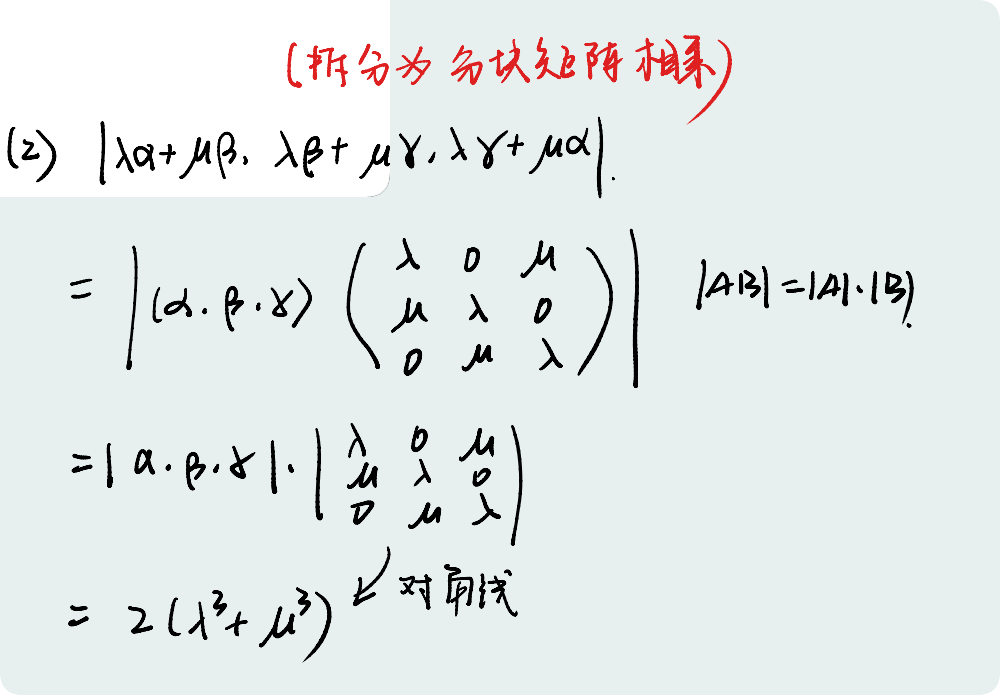 (拆分为分块矩阵相乘)
(2) |λα+μβ, λβ+μγ, λγ+μα|.
= |(α.β.γ) (λ 0 μ
μ λ 0
0 μ λ)| |AB|=|A|.|B|.
=|α.β.γ|.|λ 0 μ
μ λ 0
0 μ λ|
= 2(λ³+μ³) 对角线